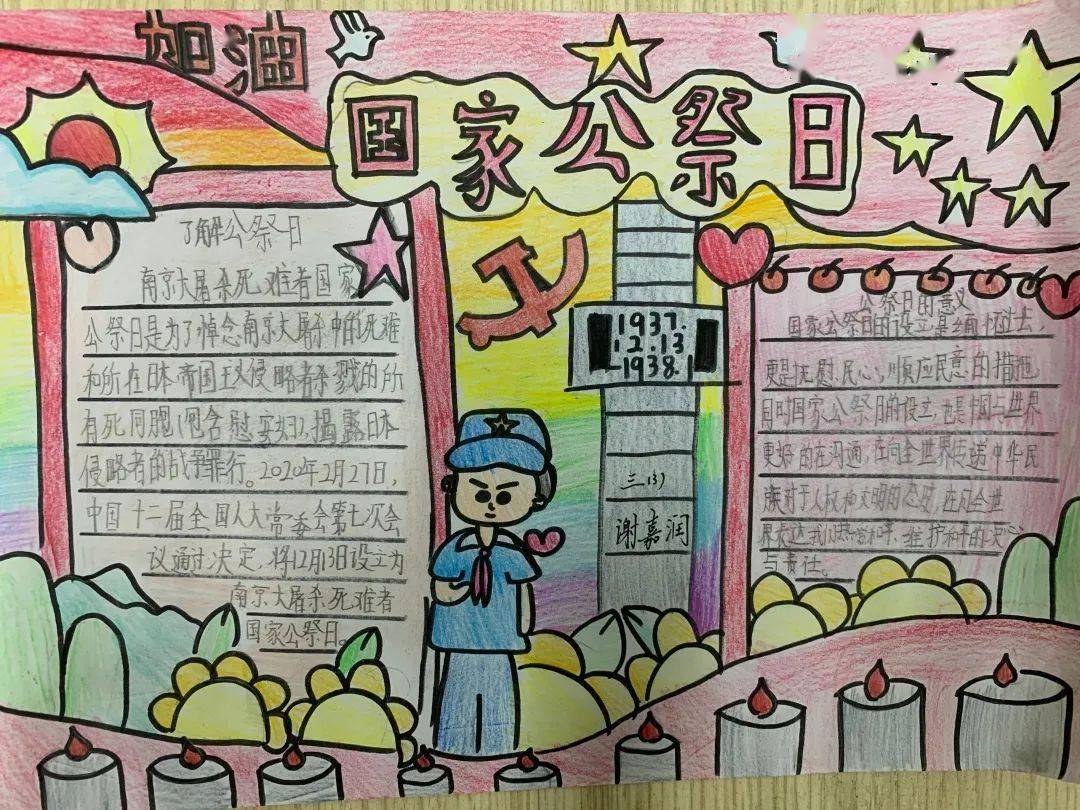 加油
国家公祭日
了解公祭日
南京大屠杀死难者国家
公祭日是为了悼念南京大屠杀中的死难
和所在日本帝国主义侵略者杀戮的所
有死同胞(包含慰安妇),揭露日本
侵略者的战争罪行。2020年2月27日,
中国十二届全国人大常委会第七次会
议通过决定,将12月13日设立为
南京大屠杀死难者
国家公祭日。
1937.
12.13
-1938.1
三(3)
谢嘉润
公祭日的意义
国家公祭日的设立是缅怀过去,
更是抚慰民心、顺应民意的措施
同时国家公祭日的设立,也是中国与世界
更好的在沟通,在向全世界传递中华民
族对于人权和文明的态度,在向全世
界表达我们热爱和平、维护和平的决心
与责任。